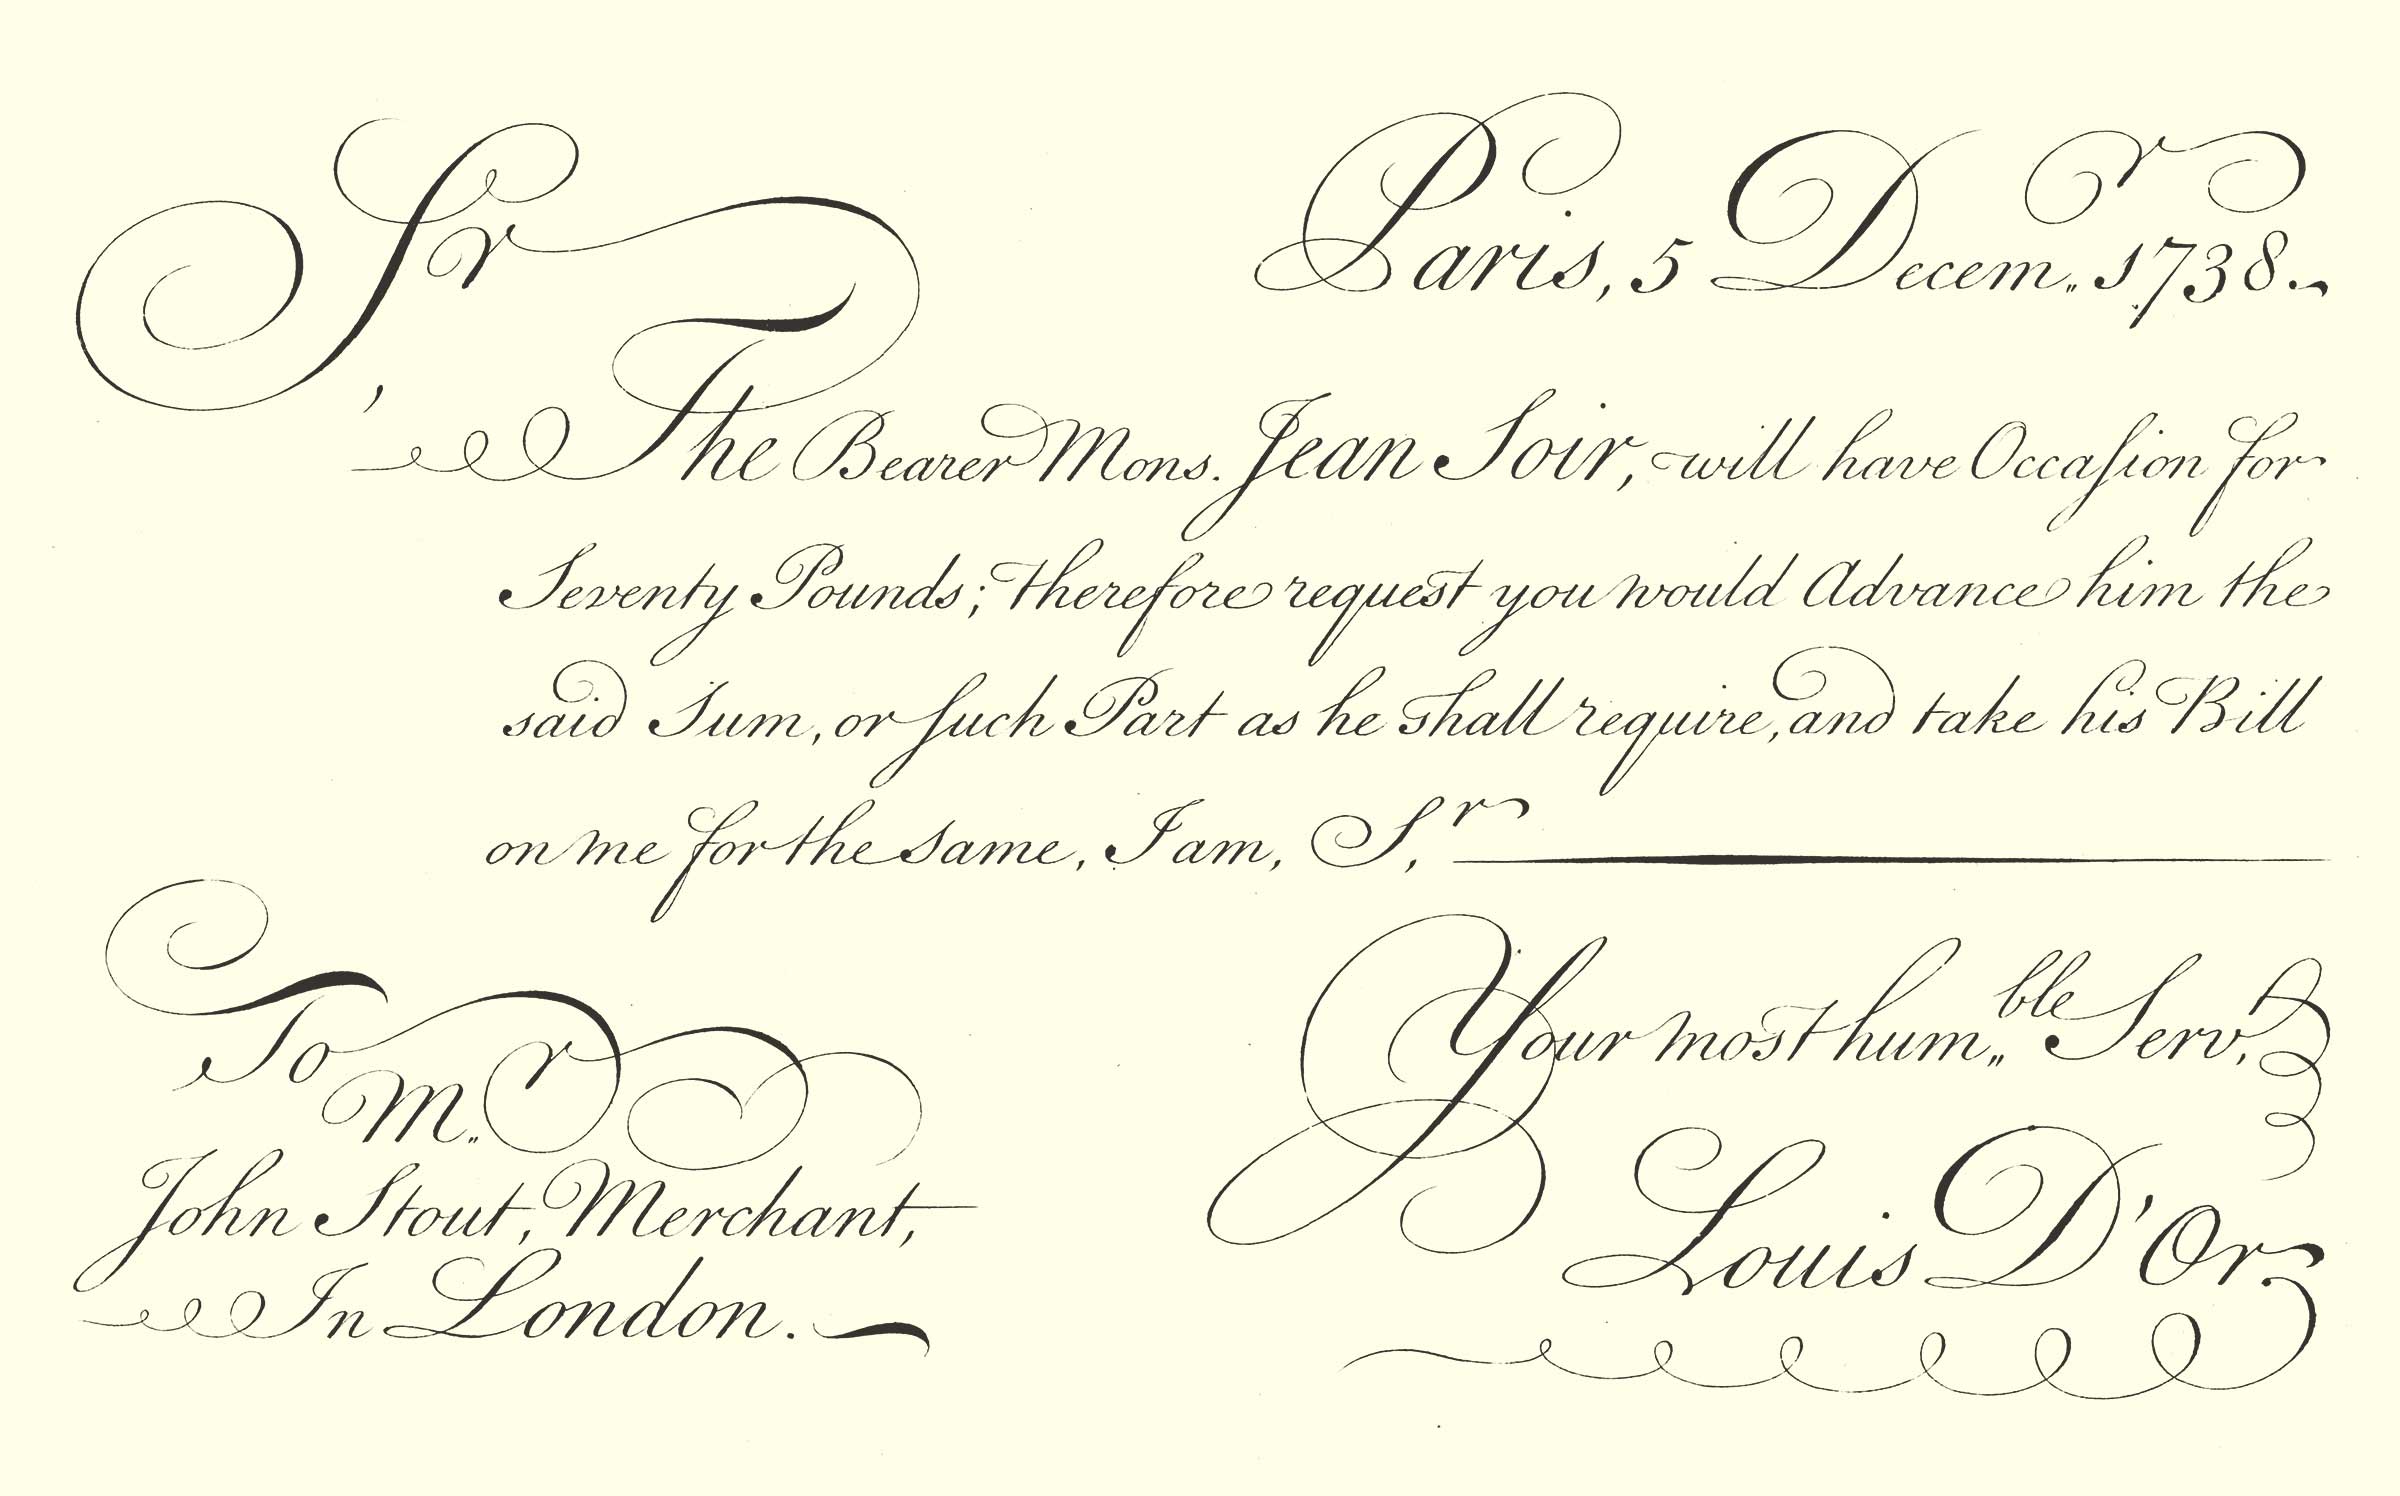 Sr,
Paris, 5 Decem.r 1738.
The Bearer Mons. Jean Soir, will have Occaſion for
Seventy Pounds; therefore request you would Advance him the
said Sum, or ſuch Part as he shall require, and take his Bill
on me for the same, I am, Sr,
Your most hum.ble Serv,t
Louis D'Or
To
M.r
John Stout, Merchant,
In London.